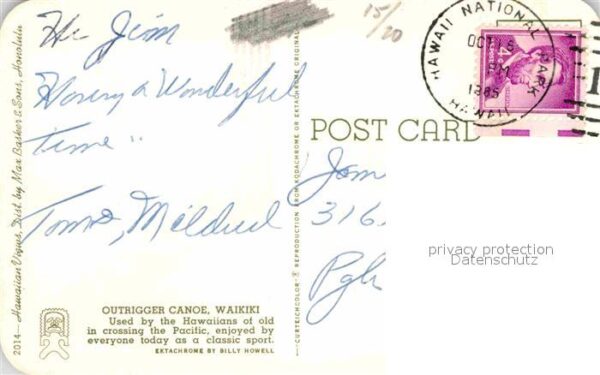 Hi Jim
Having a Wonderful
Time "
Tom & Mildred
15/20
HAWAII NATIONAL PARK
OCT 5
1965
HAWAII
4¢
POST CARD
Jam
316
Pgh
privacy protection
Datenschutz
OUTRIGGER CANOE, WAIKIKI
Used by the Hawaiians of old
in crossing the Pacific, enjoyed by
everyone today as a classic sport.
EKTACHROME BY BILLY HOWELL
2014—Hawaiian Views, Dist. by Max Basker & Sons, Honolulu
"CURTEICHCOLOR" ® REPRODUCTION FROM KODACHROME OR EKTACHROME ORIGINAL